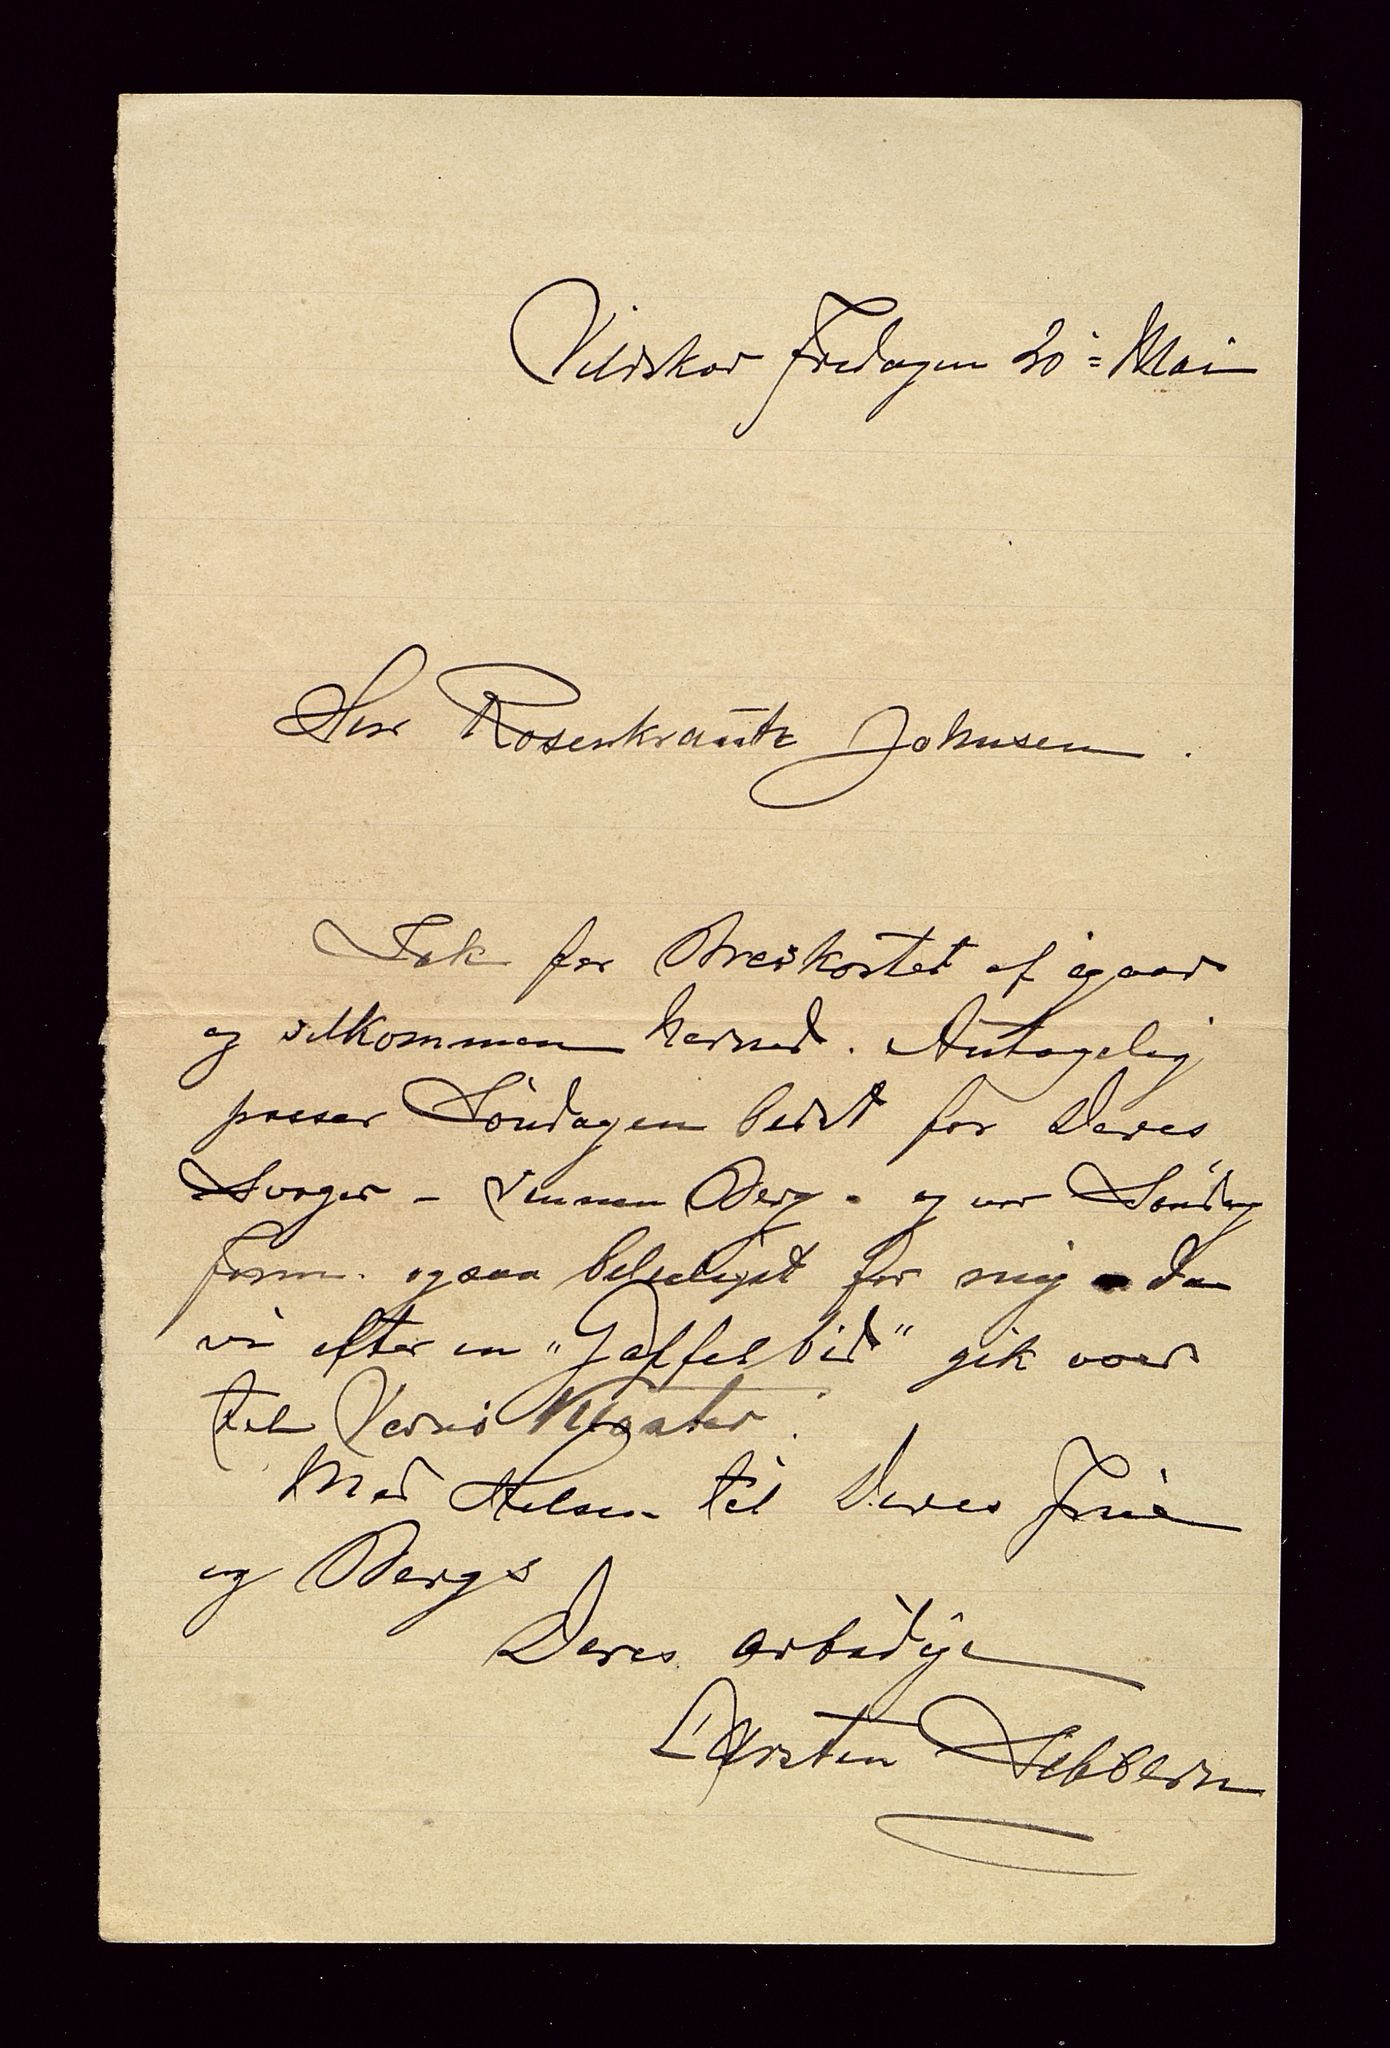 Vildskar Fredagen 20 = Mai
Herr Rosenkrantz Johnsen.
Tak for Brevkortet af igaar
og velkommen herned. Antagelig
passer Söndagen bedst for Deres
Svoger - Vennen Berg - og var Söndag
form. ogsaa beleiligst for mig - da
vi efter en „Gaffelbid" gik over
til Verne Kloster.
Med Hilsen til Deres Frue
og Bergs
Deres arbödige
Carsten Sibbern